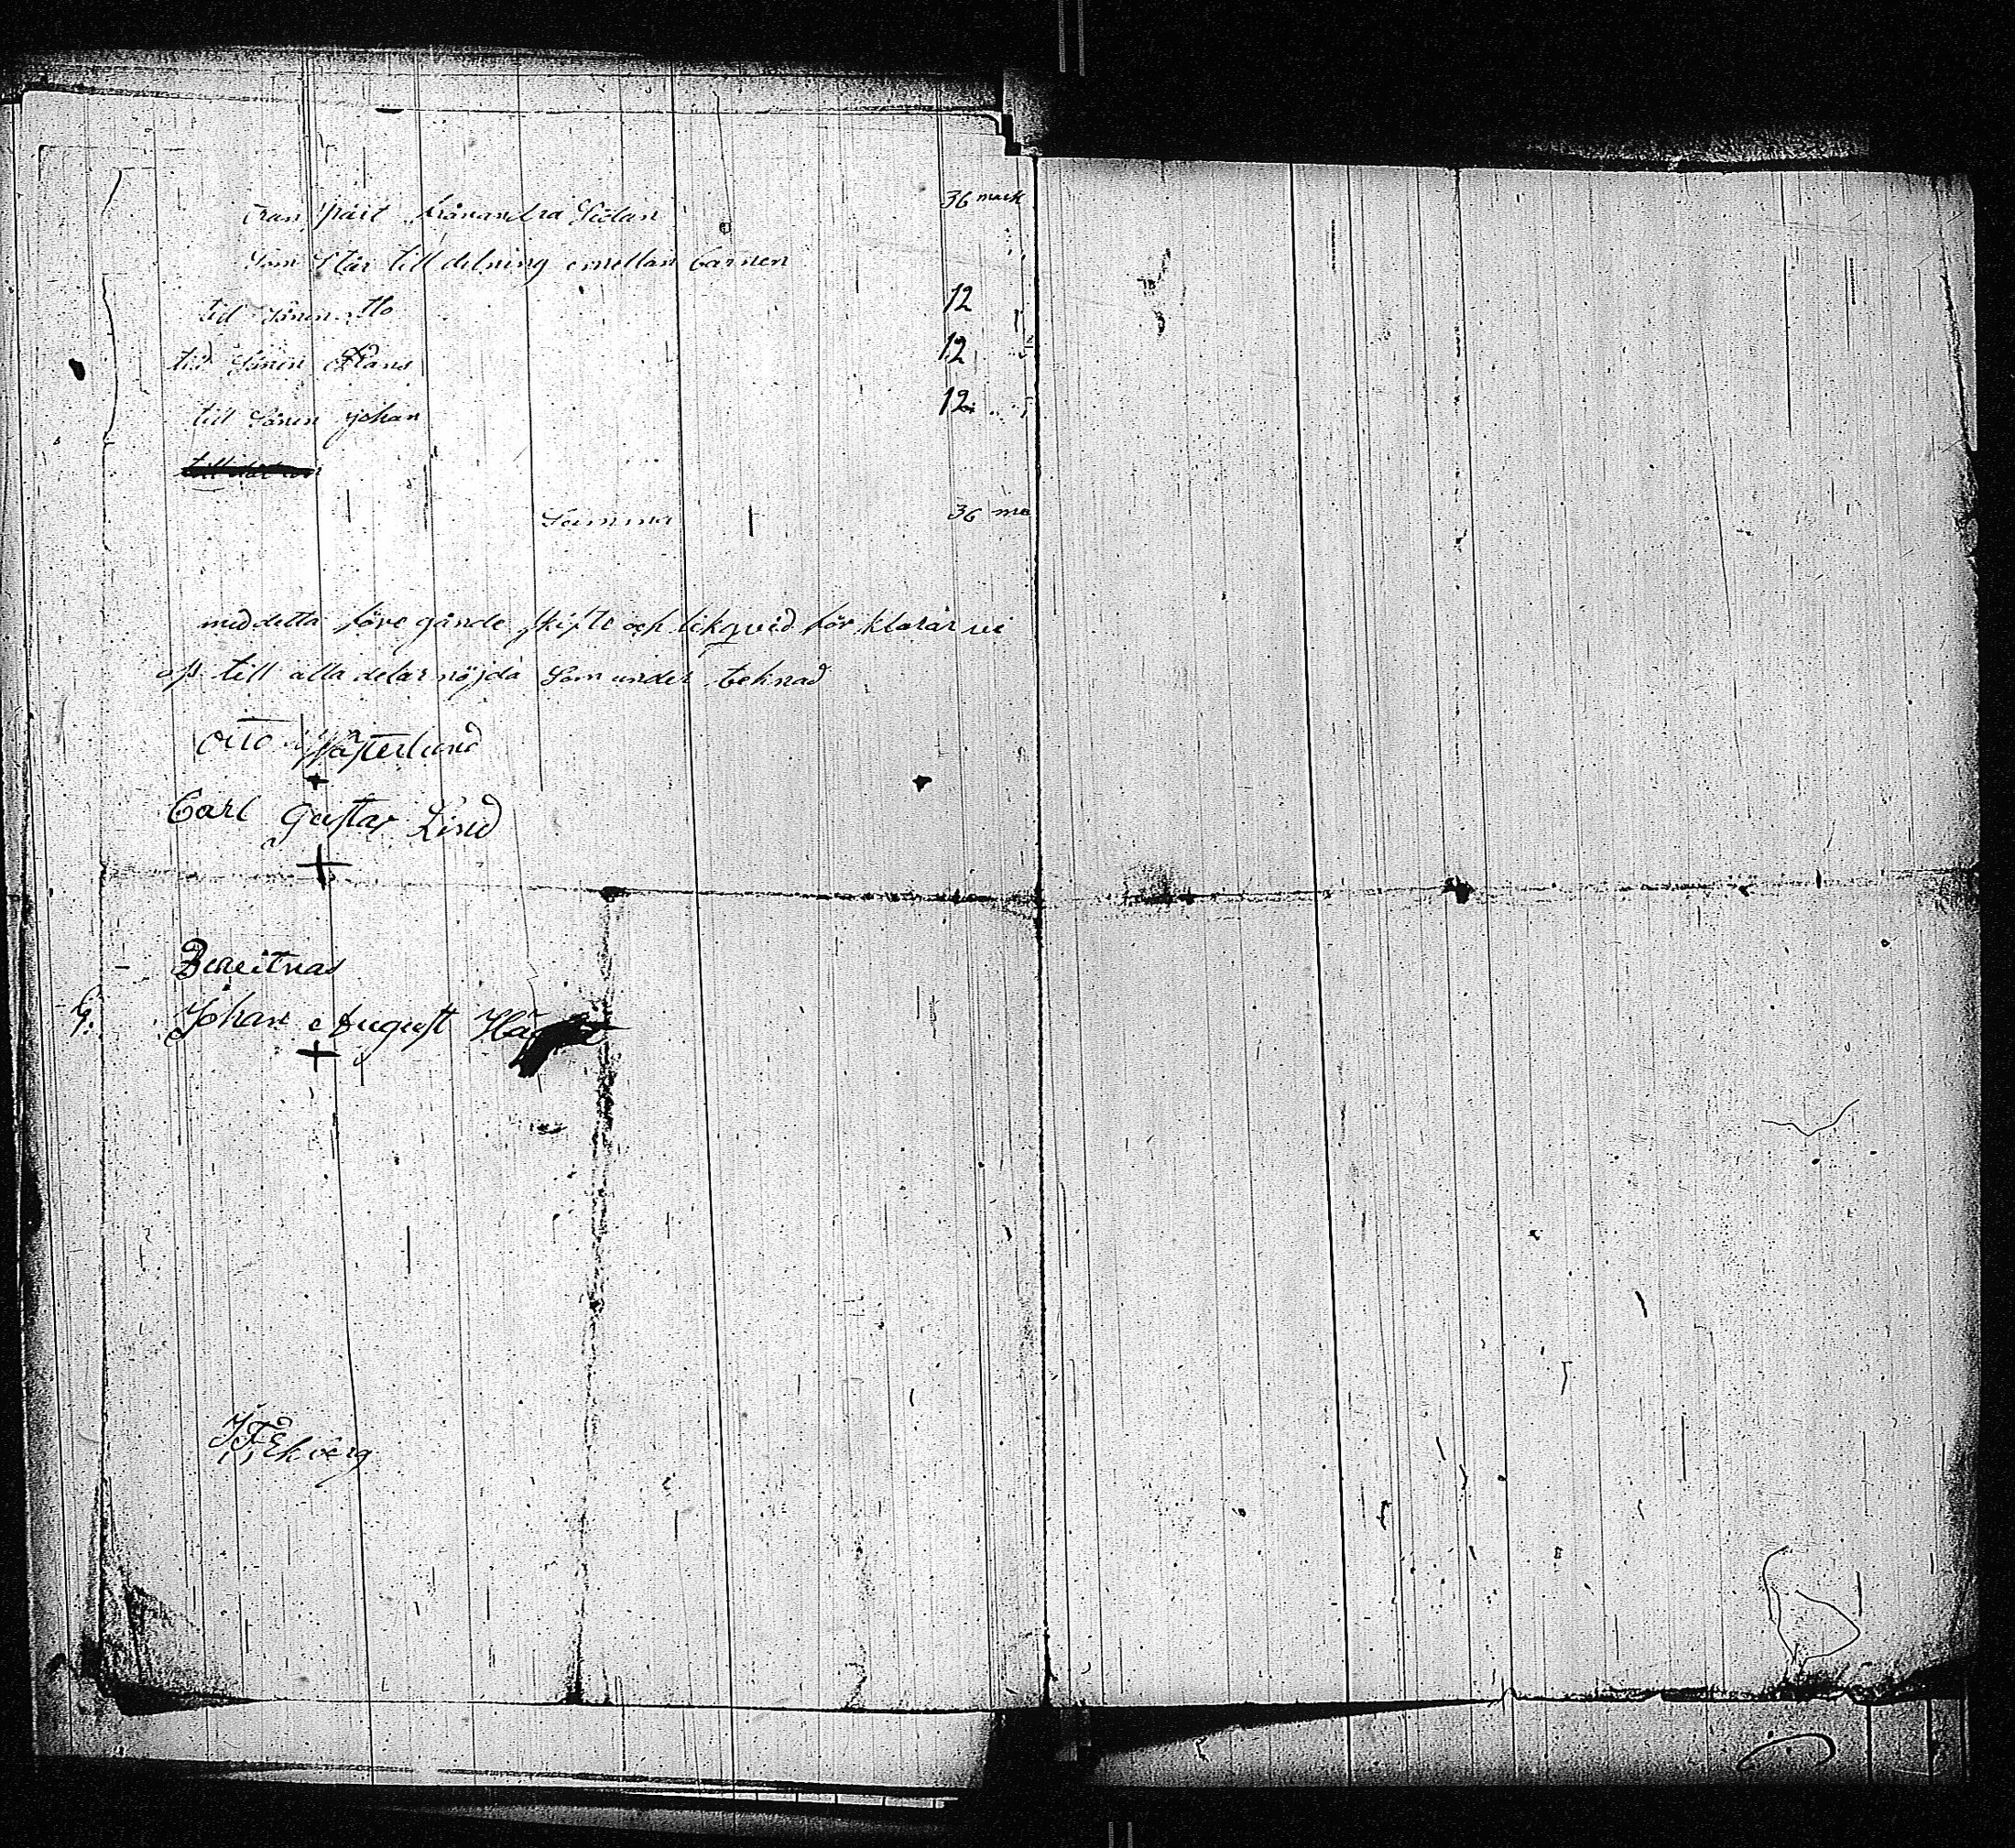 Transpårt från andra Sidan 36 mark
Som Står till delning emellan barnen
till Sönen Otto 12
till Sönen Frans 12
till Sönen johan 12
Summa 36 ma
med detta före gånde skifte och likqvid för klarar vi
oss till alla delar nöjda Som under teknad
Otto Wästerlund
Carl Gustav Lind
Johan August
J F Ekberg